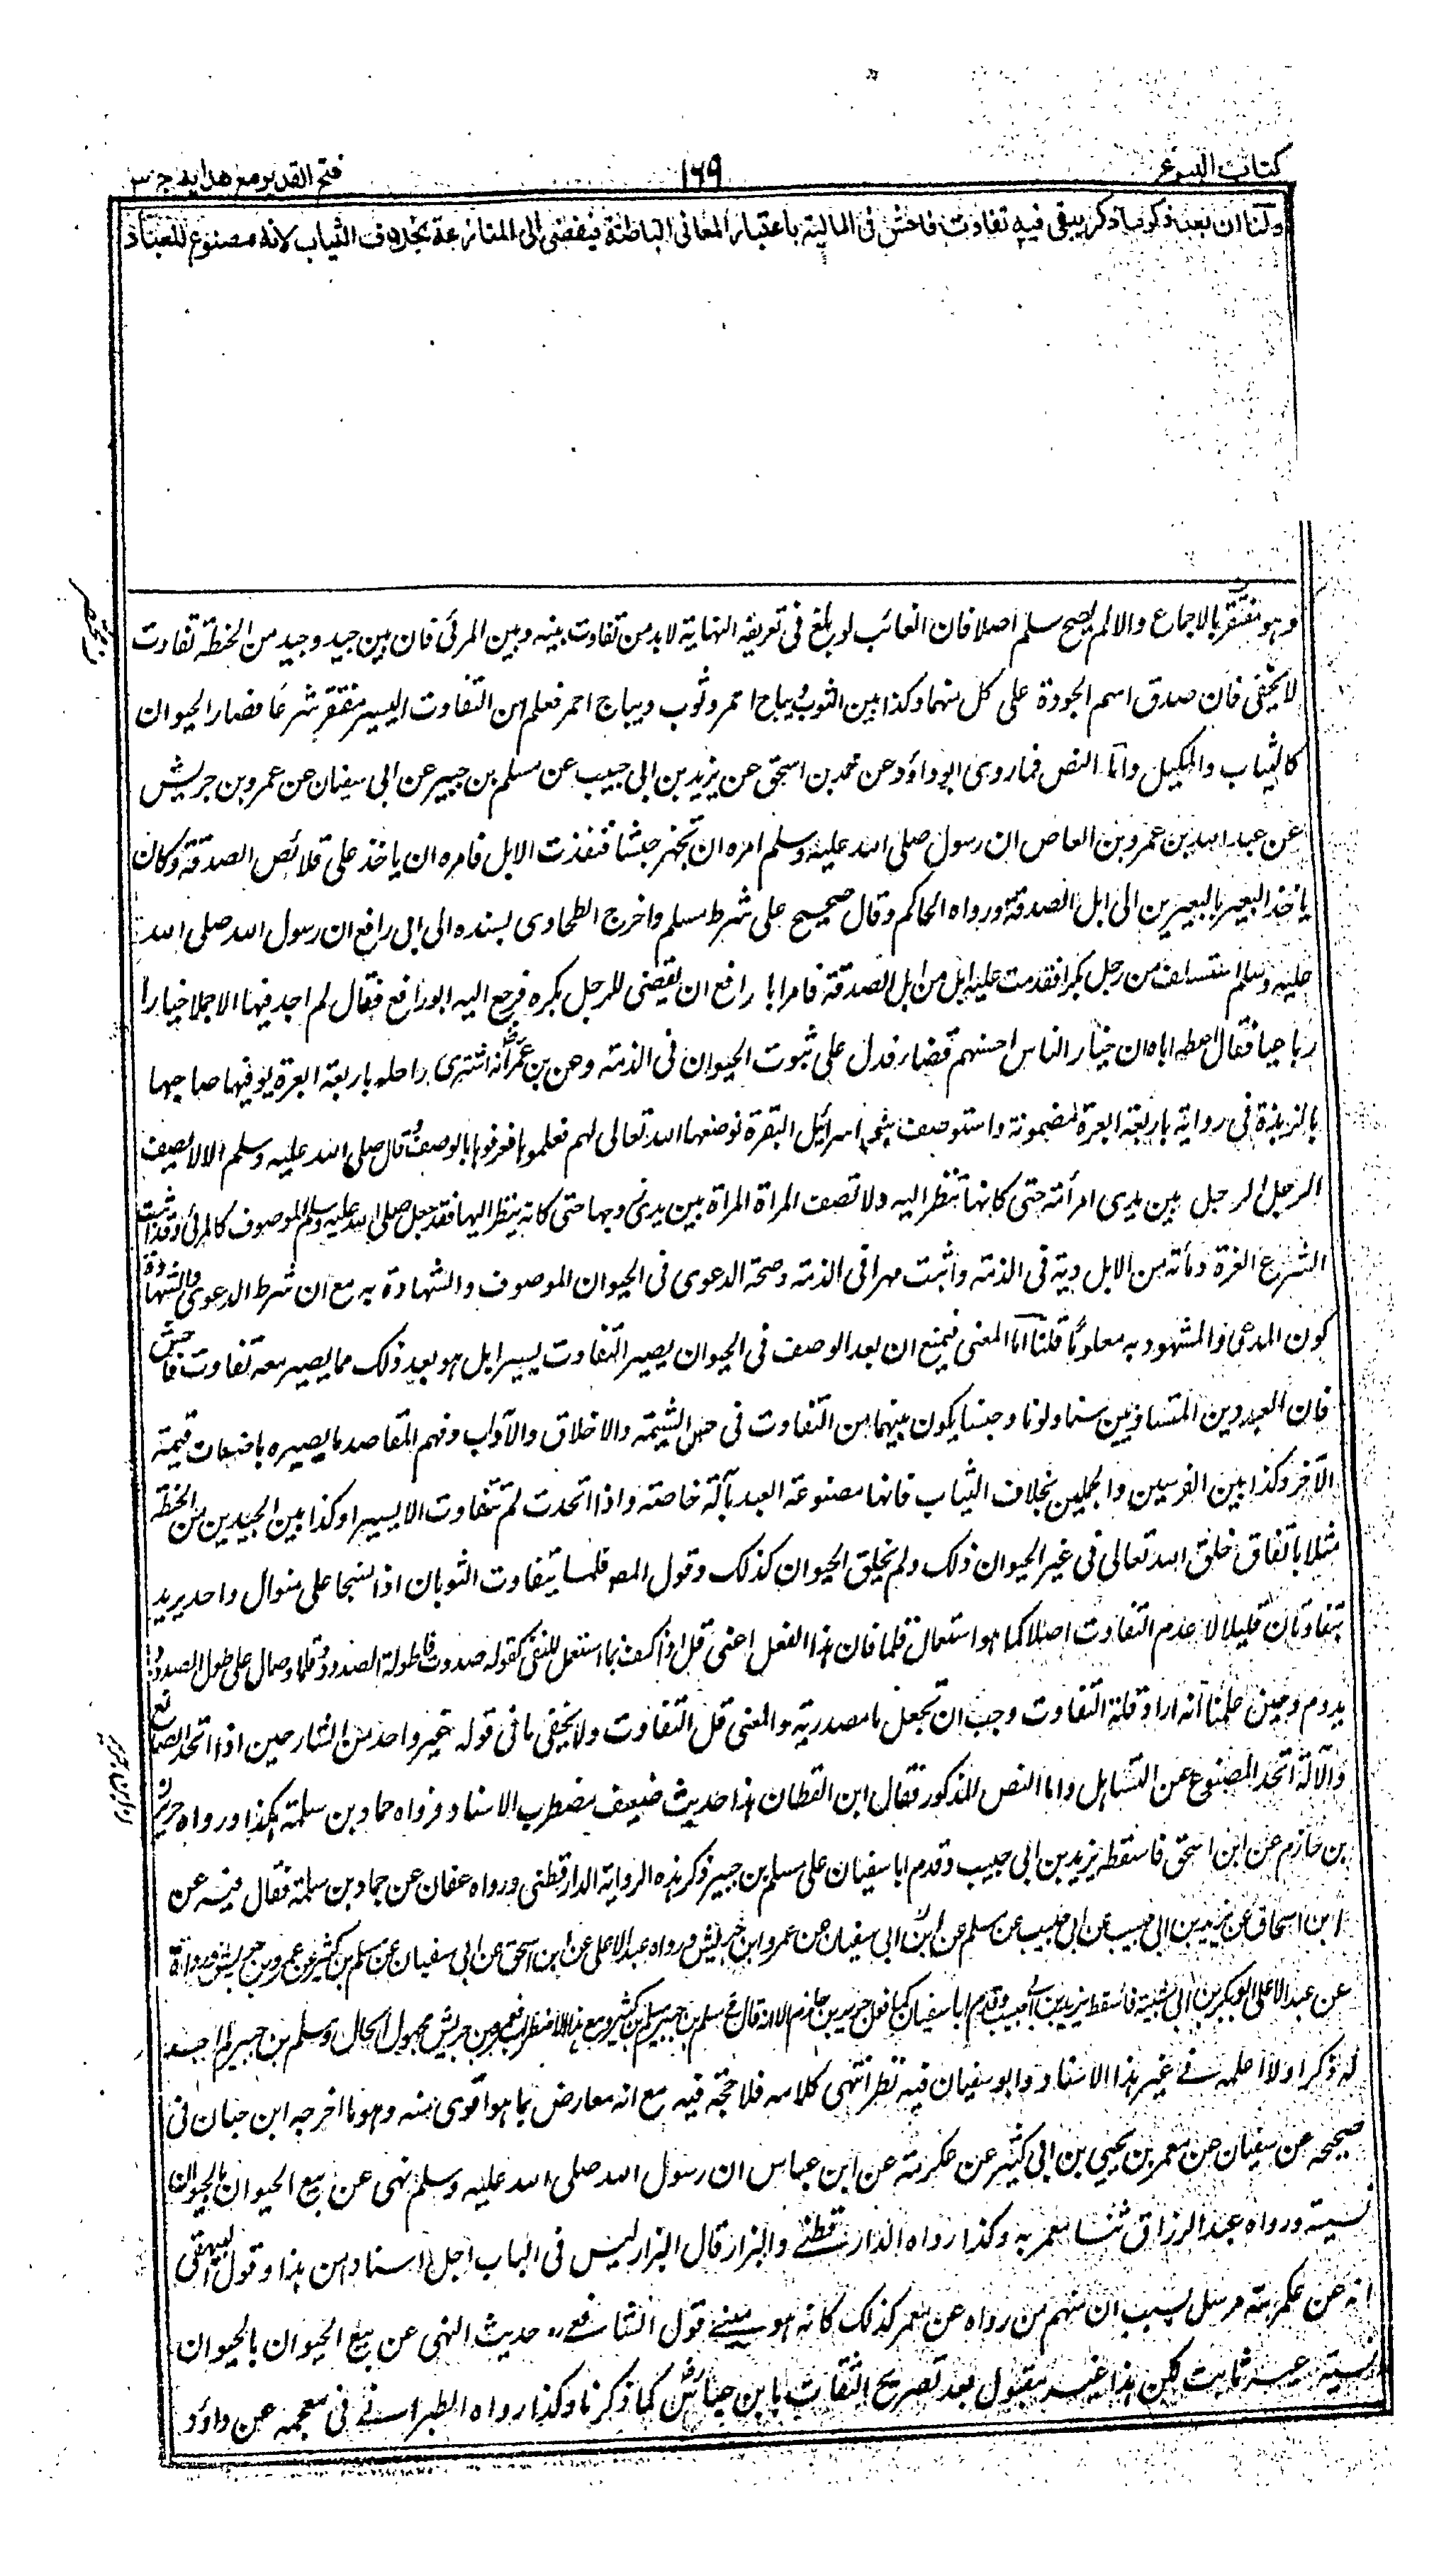 كتاب البيوع
١٦٩
فتح القدير مع هدايه ج ٣
ولنا ان بعد ذكر ما ذكر يبقى فيه تفاوت فاحش فى المالية باعتبار المعانى الباطنة فيفضى الى المنازعة بخلاف الثياب لانه مصنوع للعباد
وهو مفتقر بالاجماع والالم يصح سلم اصلا فان الغائب لو بلغ فى تعريفه النهاية لابد من تفاوت بينه وبين المرئى فان بين جيد وجيد من الحنطة تفاوت
لا يخفى فان صدق اسم الجودة على كل منهما وكذا بين الثوب ديباج احمر وثوب ديباج احمر فعلم ان التفاوت اليسير مغتفر شرعا فصار الحيوان
كالثياب والمكيل واما النص فما روى ابو داؤد عن محمد بن اسحق عن يزيد بن ابى حبيب عن مسلم بن جبير عن ابى سفيان عن عمرو بن حريش
عن عبد الله بن عمرو بن العاص ان رسول صلى الله عليه وسلم امره ان يجهز جيشا فنفذت الابل فامره ان ياخذ على قلائص الصدقة وكان
ياخذ البعير بالبعيرين الى ابل الصدقة ورواه الحاكم وقال صحيح على شرط مسلم واخرج الطحاوى بسنده الى ابى رافع ان رسول الله صلى الله
عليه وسلم استسلف من رجل بكرا فقدمت عليه ابل من ابل الصدقة فامر ابا رافع ان يقضى للرجل بكره فرجع اليه ابو رافع فقال لم اجد فيها الا جملا خيارا
رباعيا فقال اعطه اياه ان خيار الناس احسنهم قضاء فدل على ثبوت الحيوان فى الذمة وعن بن عمر رض انه اشترى راحلة باربعة ابعرة يوفيها صاحبها
بالربذة فى رواية باربعة ابعرة مضمونة واستوصف بنو اسرائيل البقرة فوصفها الله تعالى لهم فعلموها فعرفوها بالوصف وقال صلى الله عليه وسلم الا لا يصف
الرجل الرجل بين يدى امرأته حتى كانها تنظر اليه ولا تصف المراة المراة بين يدى زوجها حتى كانه ينظر اليها فقد جعل صلى الله عليه وسلم الموصوف كالمرئى وقد اثبت
الشرع الغرة ومائة من الابل دية فى الذمة واثبت مهرا فى الذمة وصحة الدعوى فى الحيوان الموصوف والشهادة به مع ان شرط الدعوى والشهادة
كون المدعى والمشهود به معلوما قلنا اما المعنى فيمنع ان بعد الوصف فى الحيوان يصير التفاوت يسيرا بل هو بعد ذلك مما يصير معه تفاوت فاحش
فان العبدين المتساويين سنا ولونا وجنسا يكون بينهما من التفاوت فى حسن الشيمة والاخلاق والآداب وفهم المقاصد ما يصيره باضعاف قيمة
الآخر وكذا بين الفرسين والجملين بخلاف الثياب فانها مصنوعة العبد بآلة خاصة واذا اتحدت لم تتفاوت الا يسيرا وكذا بين الجيدين من الحنطة
مثلا باتفاق خلق الله تعالى فى غير الحيوان ذلك ولم يخلق الحيوان كذلك وقول المص قلما يتفاوت الثوبان اذا نسجا على منوال واحد يريد
يتفاوتان قليلا لا عدم التفاوت اصلا كما هو استعمال قلما فان هذا الفعل اعنى قل اذا كف بما استعمل للنفى كقوله صددت فاطولة الصدود وقلما وصال على طول الصدود
يدوم وحين علمنا انه اراد قلة التفاوت وجب ان تجعل ما مصدرية والمعنى قل التفاوت ولا يخفى ما فى قوله غير واحد من الشارحين اذا اتحد الصانع
والآلة اتحد المصنوع عن التساهل واما النص المذكور فقال ابن القطان هذا حديث ضعيف مضطرب الاسناد فرواه حماد بن سلمة هكذا ورواه جرير
بن حازم عن ابن اسحق فاسقط يزيد بن ابى حبيب وقدم ابا سفيان على مسلم بن جبير ذكر هذه الرواية الدارقطنى ورواه عفان عن حماد بن سلمة فقال فيه عن
ابن اسحاق عن يزيد بن ابى حبيب عن ابى حبيب عن مسلم عن ابى سفيان عن عمرو بن حريش ورواه عبد الاعلى عن ابن اسحق عن ابى سفيان عن مسلم بن كثير عن عمرو بن حريش ورواه
عن عبد الاعلى ابو بكر بن ابى شيبة فاسقط يزيد بن ابى حبيب وقدم ابا سفيان كما فعل جرير بن حازم الا انه قال مسلم بن جبير مسلم بن كثير ومع هذا الاضطراب فعمرو بن حريش مجهول الحال ومسلم بن جبير لم اجد
له ذكرا ولا اعلمه فى غير هذا الاسناد وابو سفيان فيه نظر انتهى كلامه فلا حجة فيه مع انه معارض بما هو اقوى منه وهو ما اخرجه ابن حبان فى
صحيحه عن سفيان عن معمر بن يحيى بن ابى كثير عن عكرمة عن ابن عباس ان رسول الله صلى الله عليه وسلم نهى عن بيع الحيوان بالحيوان
نسيئة ورواه عبد الرزاق ثنا معمر به وكذا رواه الدارقطنى والبزار قال البزار ليس فى الباب اجل اسنادا من هذا وقول البيهقى
انه عن عكرمة مرسل بسبب ان منهم من رواه عن معمر كذلك كانه هو مبنى قول الشافعى حديث النهى عن بيع الحيوان بالحيوان
نسيئة غير ثابت لكن هذا غير مقبول بعد تصريح الثقات بابن عباس رض كما ذكرنا وكذا رواه الطبرانى فى معجمه عن داؤد